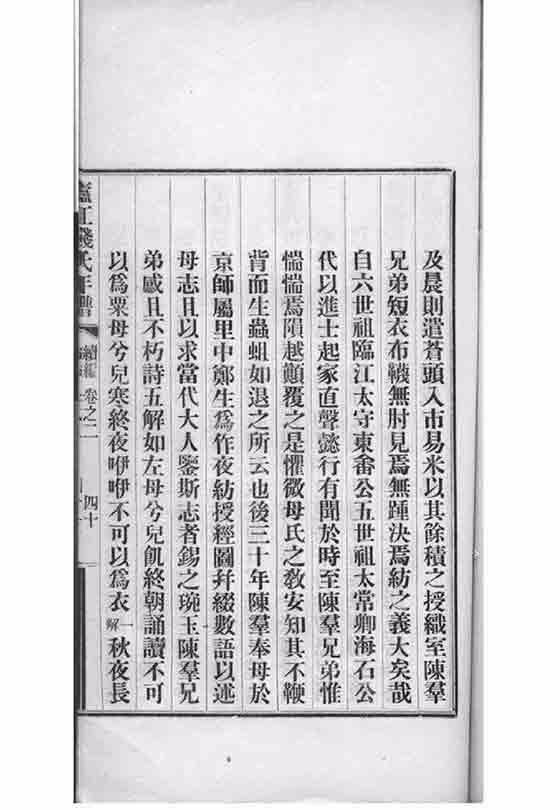 及晨則遣蒼頭入市易米以其餘積之授織室陳羣
兄弟短衣布韈無肘見焉無踵決焉紡之義大矣哉
自六世祖臨江太守東畬公五世祖太常卿海石公
代以進士起家直聲懿行有聞於時至陳羣兄弟惟
惴惴焉隕越顚覆之是懼微母氏之敎安知其不鞭
背而生蟲蛆如退之所云也後三十年陳羣奉母於
京師屬里中鄭生爲作夜紡授經圖幷綴數語以述
母志且以求當代大人鑒斯志者錫之琬玉陳羣兄
弟感且不朽詩五解如左母兮兒飢終朝誦讀不可
以爲粟母兮兒寒終夜咿咿不可以爲衣一解秋夜長
廬江錢氏年譜 續編 卷之二 四十